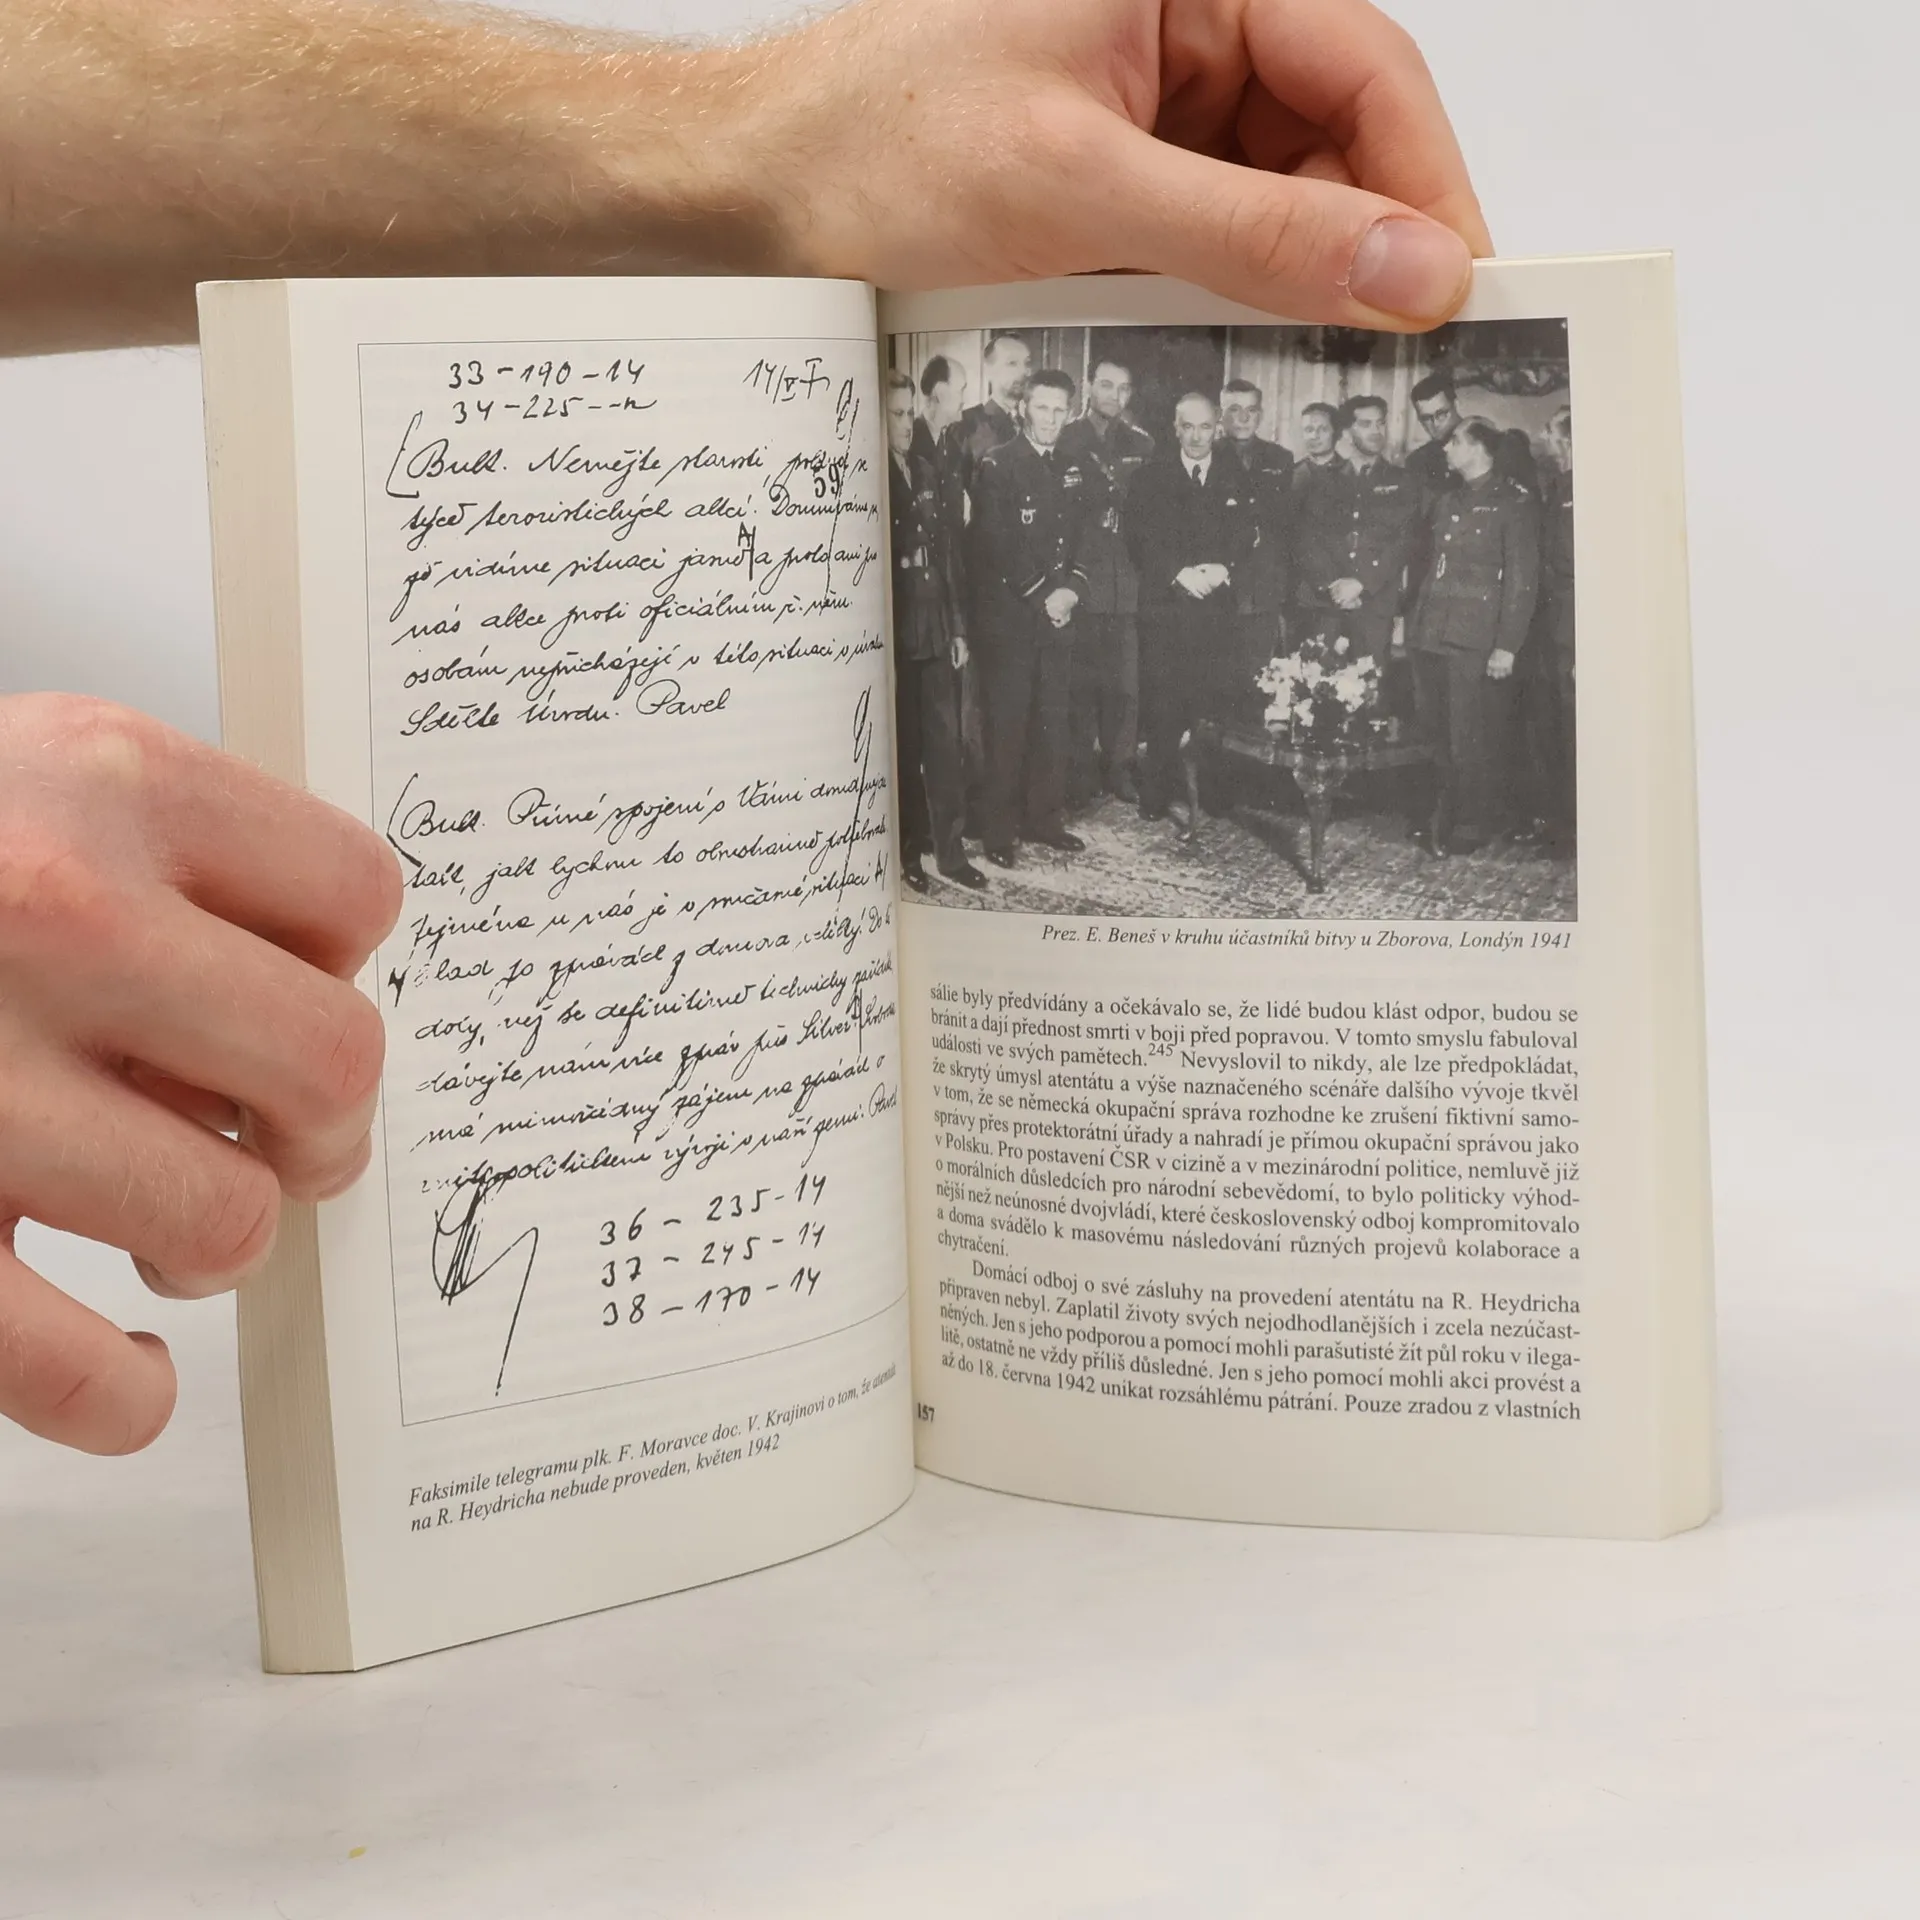 33-190-14
34-225--n
14/V
59
Buk. Nemějte starosti, pokud se
týče teroristických akcí. Domníváme se,
že vidíme situaci jasně a proto
nás akce proti oficiálním
osobám nepřicházejí v této situaci v úvahu.
Sdělte Úvodu. Pavel
Buk. Přímé spojení s Vámi
tak, jak bychom to potřebovali.
Zejména u nás je v situaci
po zprávách z domova veliký. Do té
doby, než se definitivně technicky
nám více zpráv Silver
má mimořádný zájem na zprávách o
vývoji v naší zemi. Pavel
36 - 235-14
37 - 245-14
38 - 170-14
Faksimile telegramu plk. F. Moravce doc. V. Krajinovi o tom, že atentát
na R. Heydricha nebude proveden, květen 1942
Prez. E. Beneš v kruhu účastníků bitvy u Zborova, Londýn 1941
sálie byly předvídány a očekávalo se, že lidé budou klást odpor, budou se
bránit a dají přednost smrti v boji před popravou. V tomto smyslu fabuloval
události ve svých pamětech.245 Nevyslovil to nikdy, ale lze předpokládat,
že skrytý úmysl atentátu a výše naznačeného scénáře dalšího vývoje tkvěl
v tom, že se německá okupační správa rozhodne ke zrušení fiktivní samo-
správy přes protektorátní úřady a nahradí je přímou okupační správou jako
v Polsku. Pro postavení ČSR v cizině a v mezinárodní politice, nemluvě již
o morálních důsledcích pro národní sebevědomí, to bylo politicky výhod-
nější než neúnosné dvojvládí, které československý odboj kompromitovalo
a doma svádělo k masovému následování různých projevů kolaborace a
chytračení.
Domácí odboj o své zásluhy na provedení atentátu na R. Heydricha
připraven nebyl. Zaplatil životy svých nejodhodlanějších i zcela nezúčast-
něných. Jen s jeho podporou a pomocí mohli parašutisté žít půl roku v ilega-
litě, ostatně ne vždy příliš důsledné. Jen s jeho pomocí mohli akci provést a
až do 18. června 1942 unikat rozsáhlému pátrání. Pouze zradou z vlastních
157